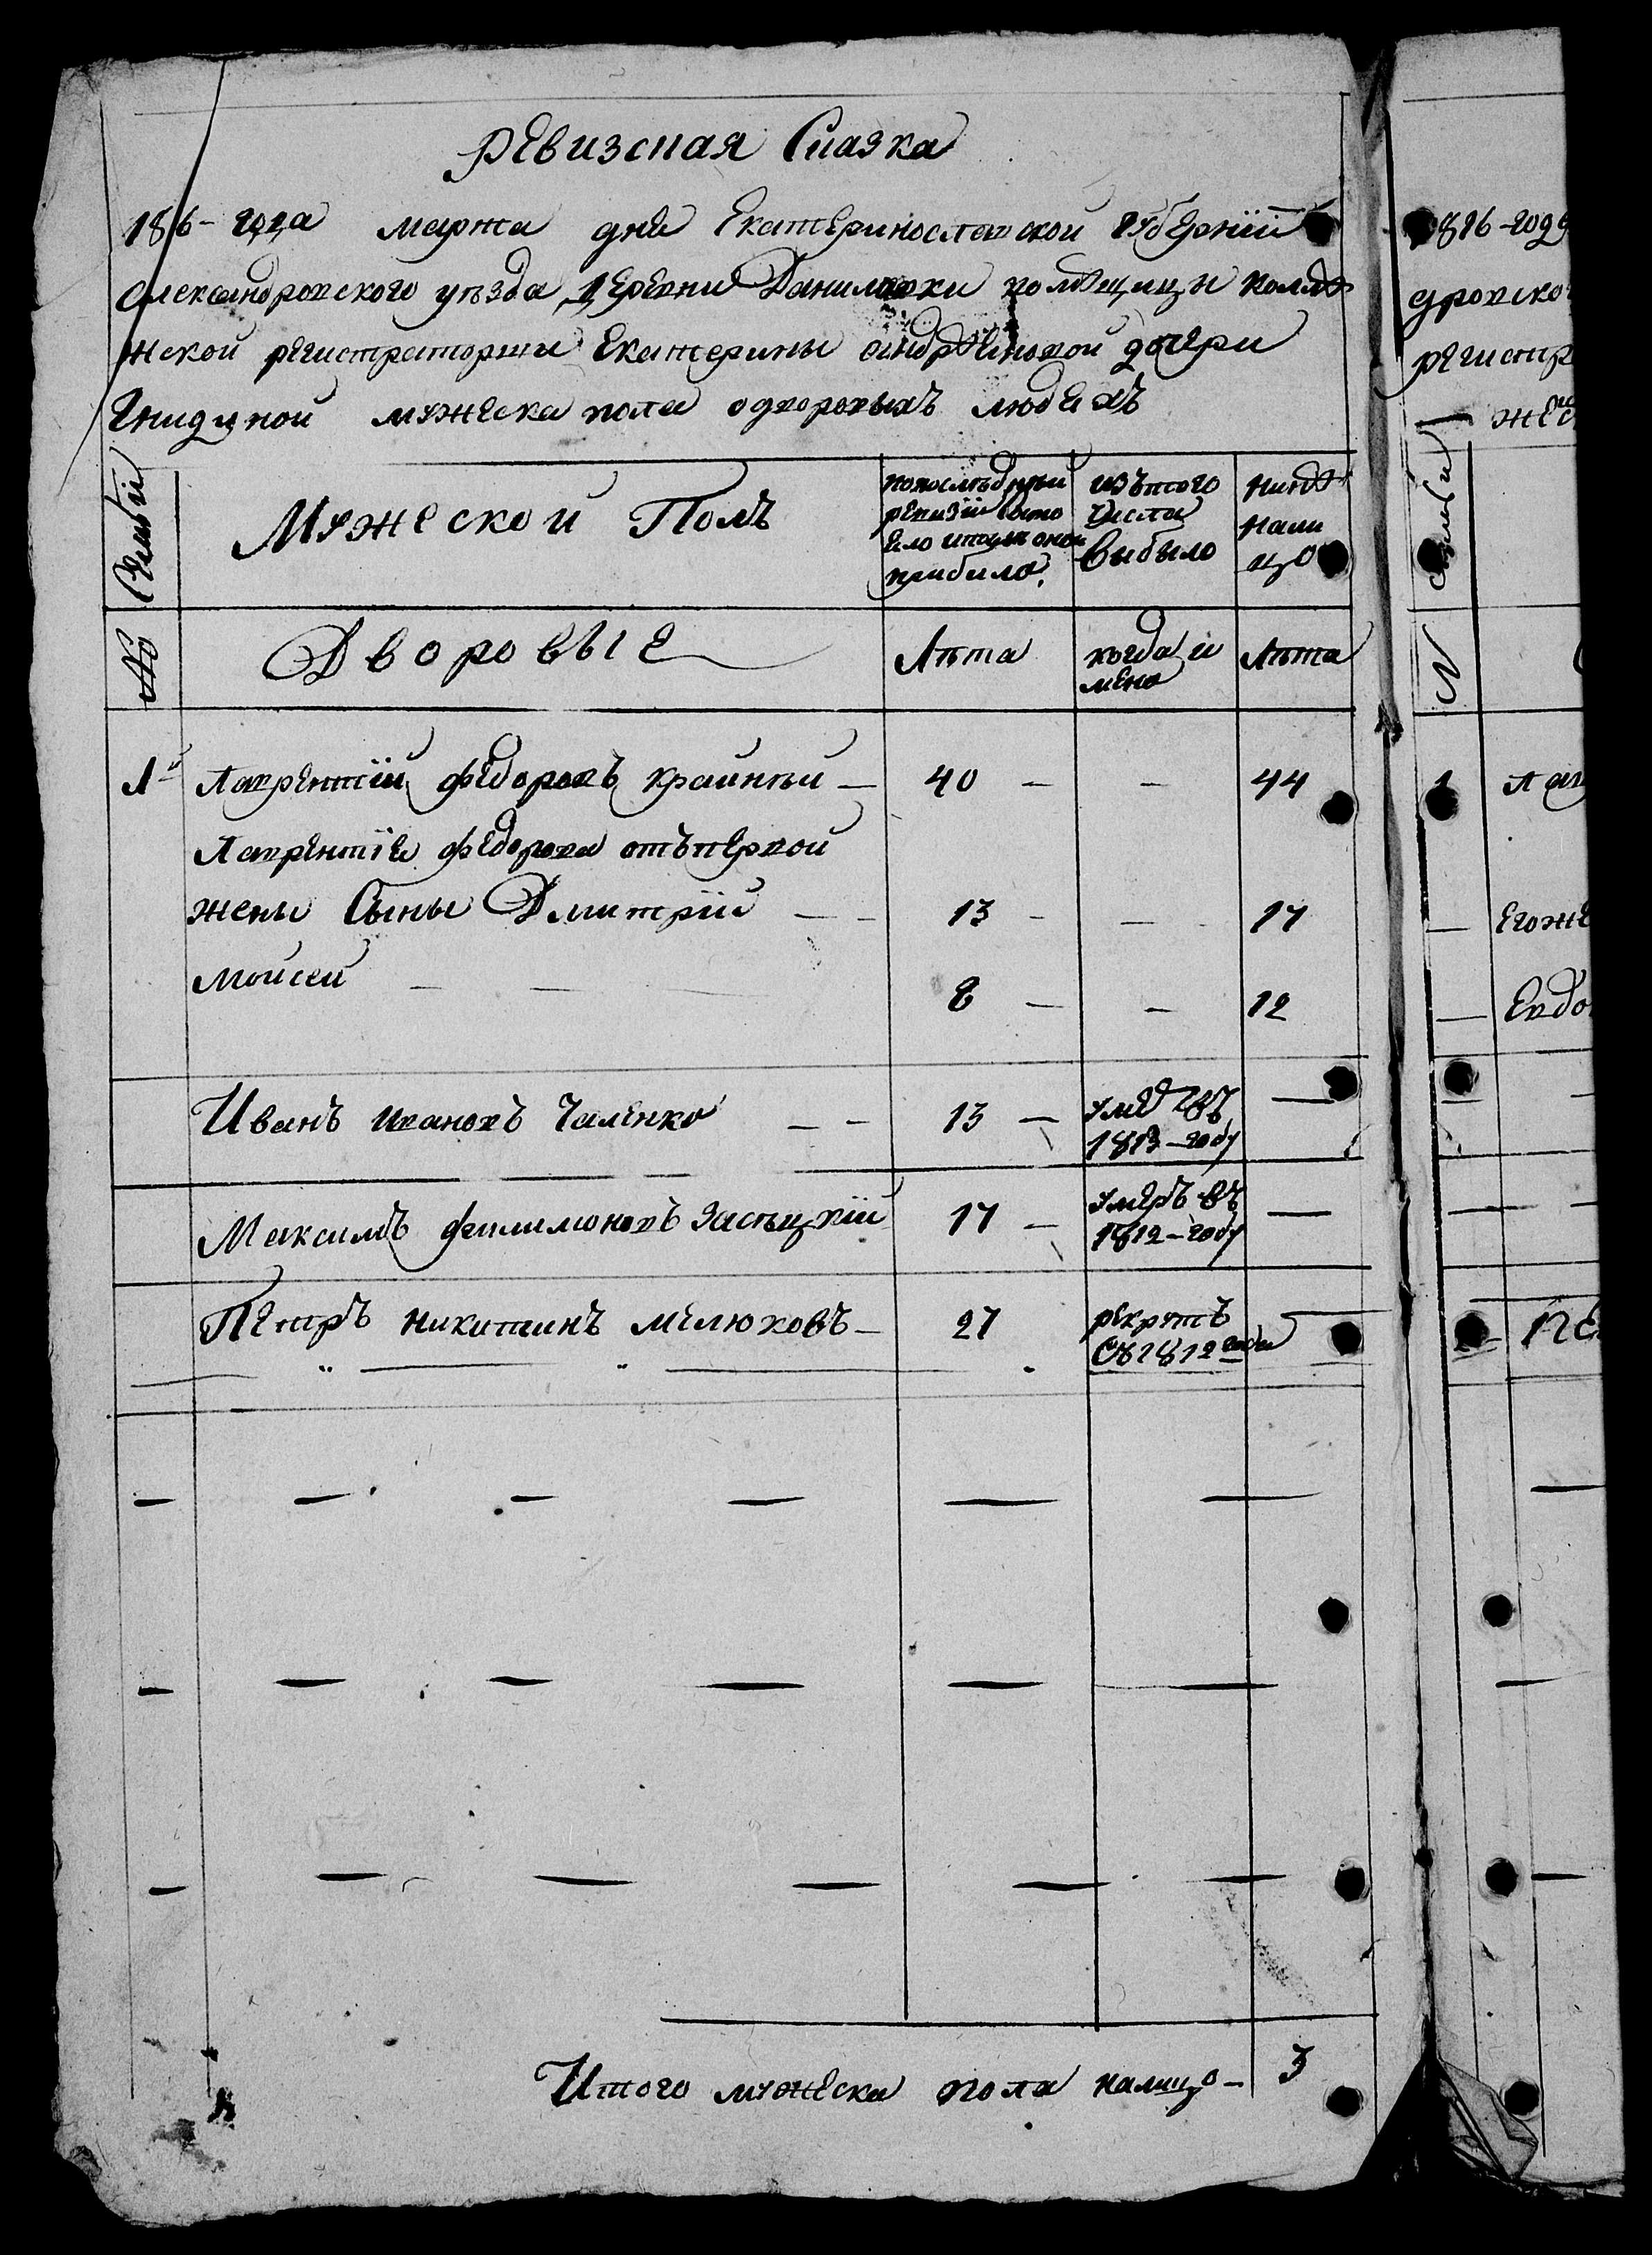 Ревизская Сказка
1816-года марта дня Екатеринославской губерніи
Александровского уѣзда деревни Даниловки помѣщицы колле
жской регистраторши Екатерины Андреиновой дочери
мужеска пола одворовыхъ людехъ
Семьи
Мужеской Полъ
попоследней ревизіи состо яло ипосле оной прибило
изътого числа выбыло
нинѣ нали цо
№
Дворовые
Лѣта
когда и мено
Лѣта
1й Лаврентій Федоровъ Крайній — 40 — — 44
Лаврентіе Федорова отъпервой
жены Сыны Дмитрій — — 13 — — 17
Мойсей — — 8 — — 12
Иванъ Ивановъ Чаленко — — 13 — умре въ 1813-году —
Максимъ Филимоновъ Засецкій 17 — умеръ въ 1812-году —
Петръ Никитинъ Мелюховъ — 27 рекрутъ Съ 1812 года
Итого мужеска пола налицо — 3
1816-года
дровско
регистр
жес
Семьи
N
1 Лав
— Егоже
— Евдо
— Пе